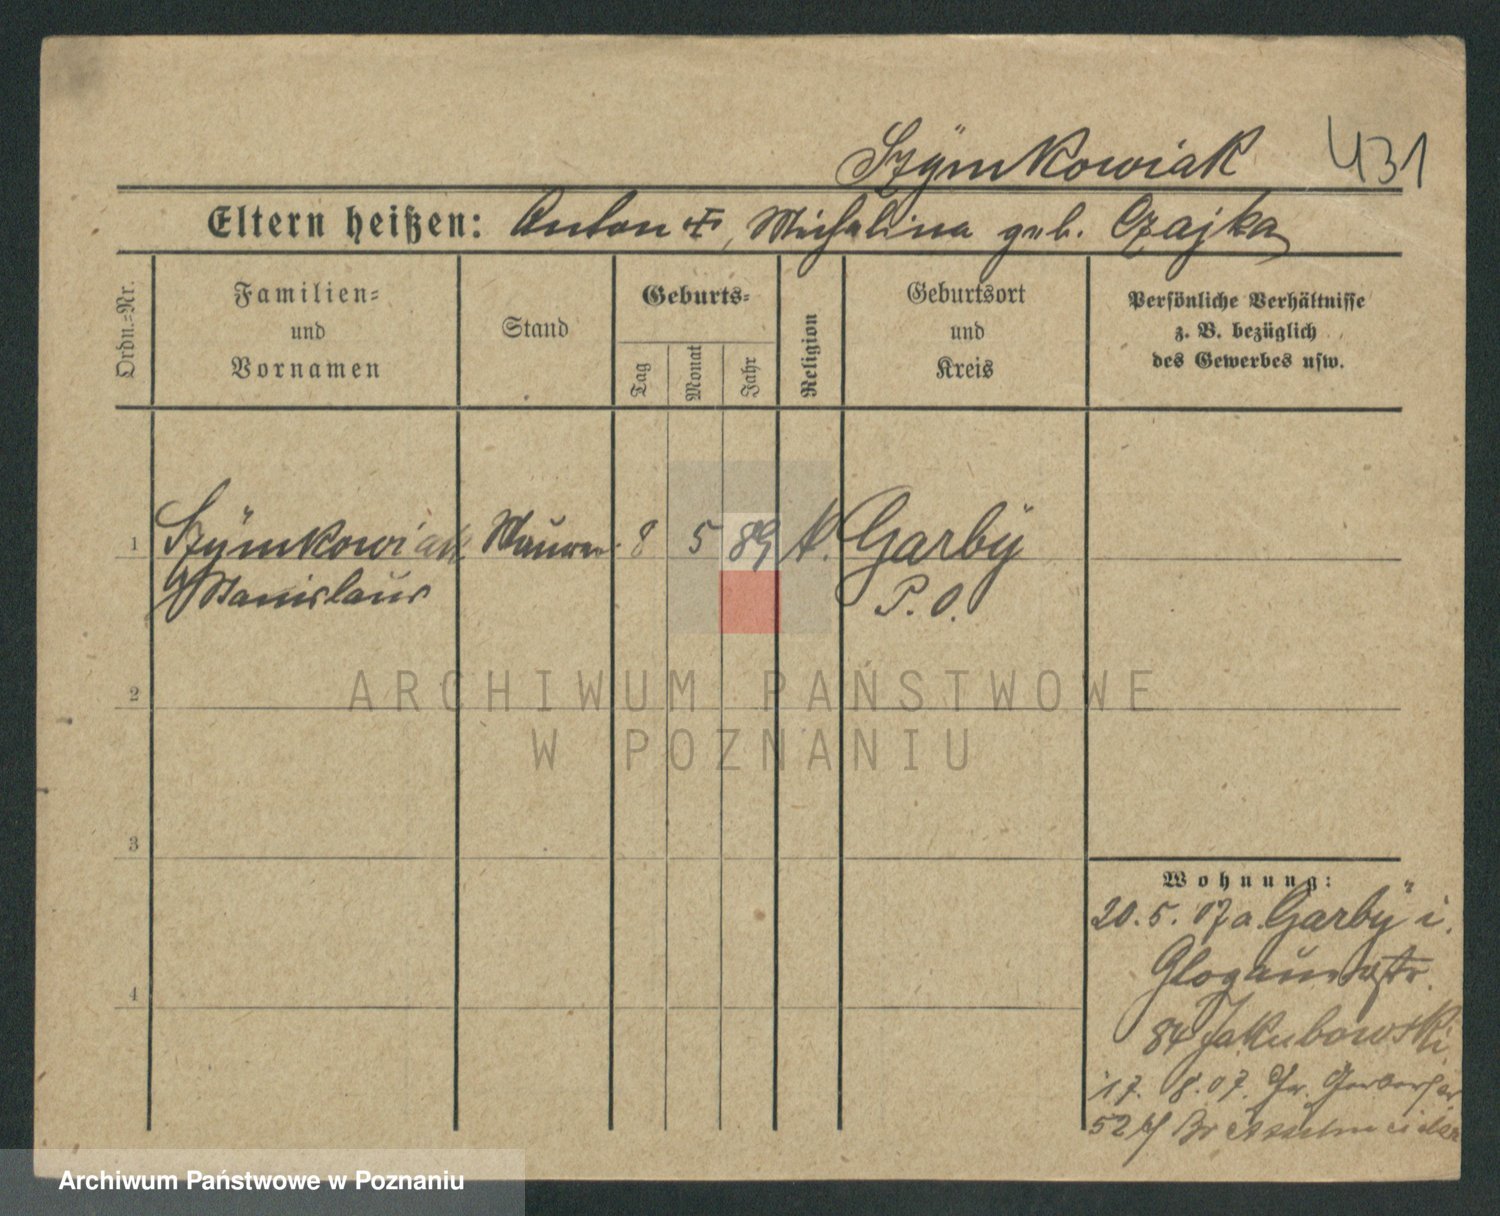 Szÿmkowiak 431
Eltern heißen: Anton †, Michalina geb. Czajka
Ordn.=Nr.
Familien=
und
Vornamen
Stand
Geburts=
Tag
Monat
Jahr
Religion
Geburtsort
und
Kreis
Persönliche Verhältnisse
z. B. bezüglich
des Gewerbes usw.
1 Szÿmkowiak Maurer 8 5 89 k. Garbÿ
Stanislaus P. O.
2
3
4
Wohnung:
20. 5. 07 a. Garbÿ i.
Glogauerstr.
84 Jakubowski
17. 8. 07. Gr. Gerberstr
52
ARCHIWUM PAŃSTWOWE
W POZNANIU
Archiwum Państwowe w Poznaniu